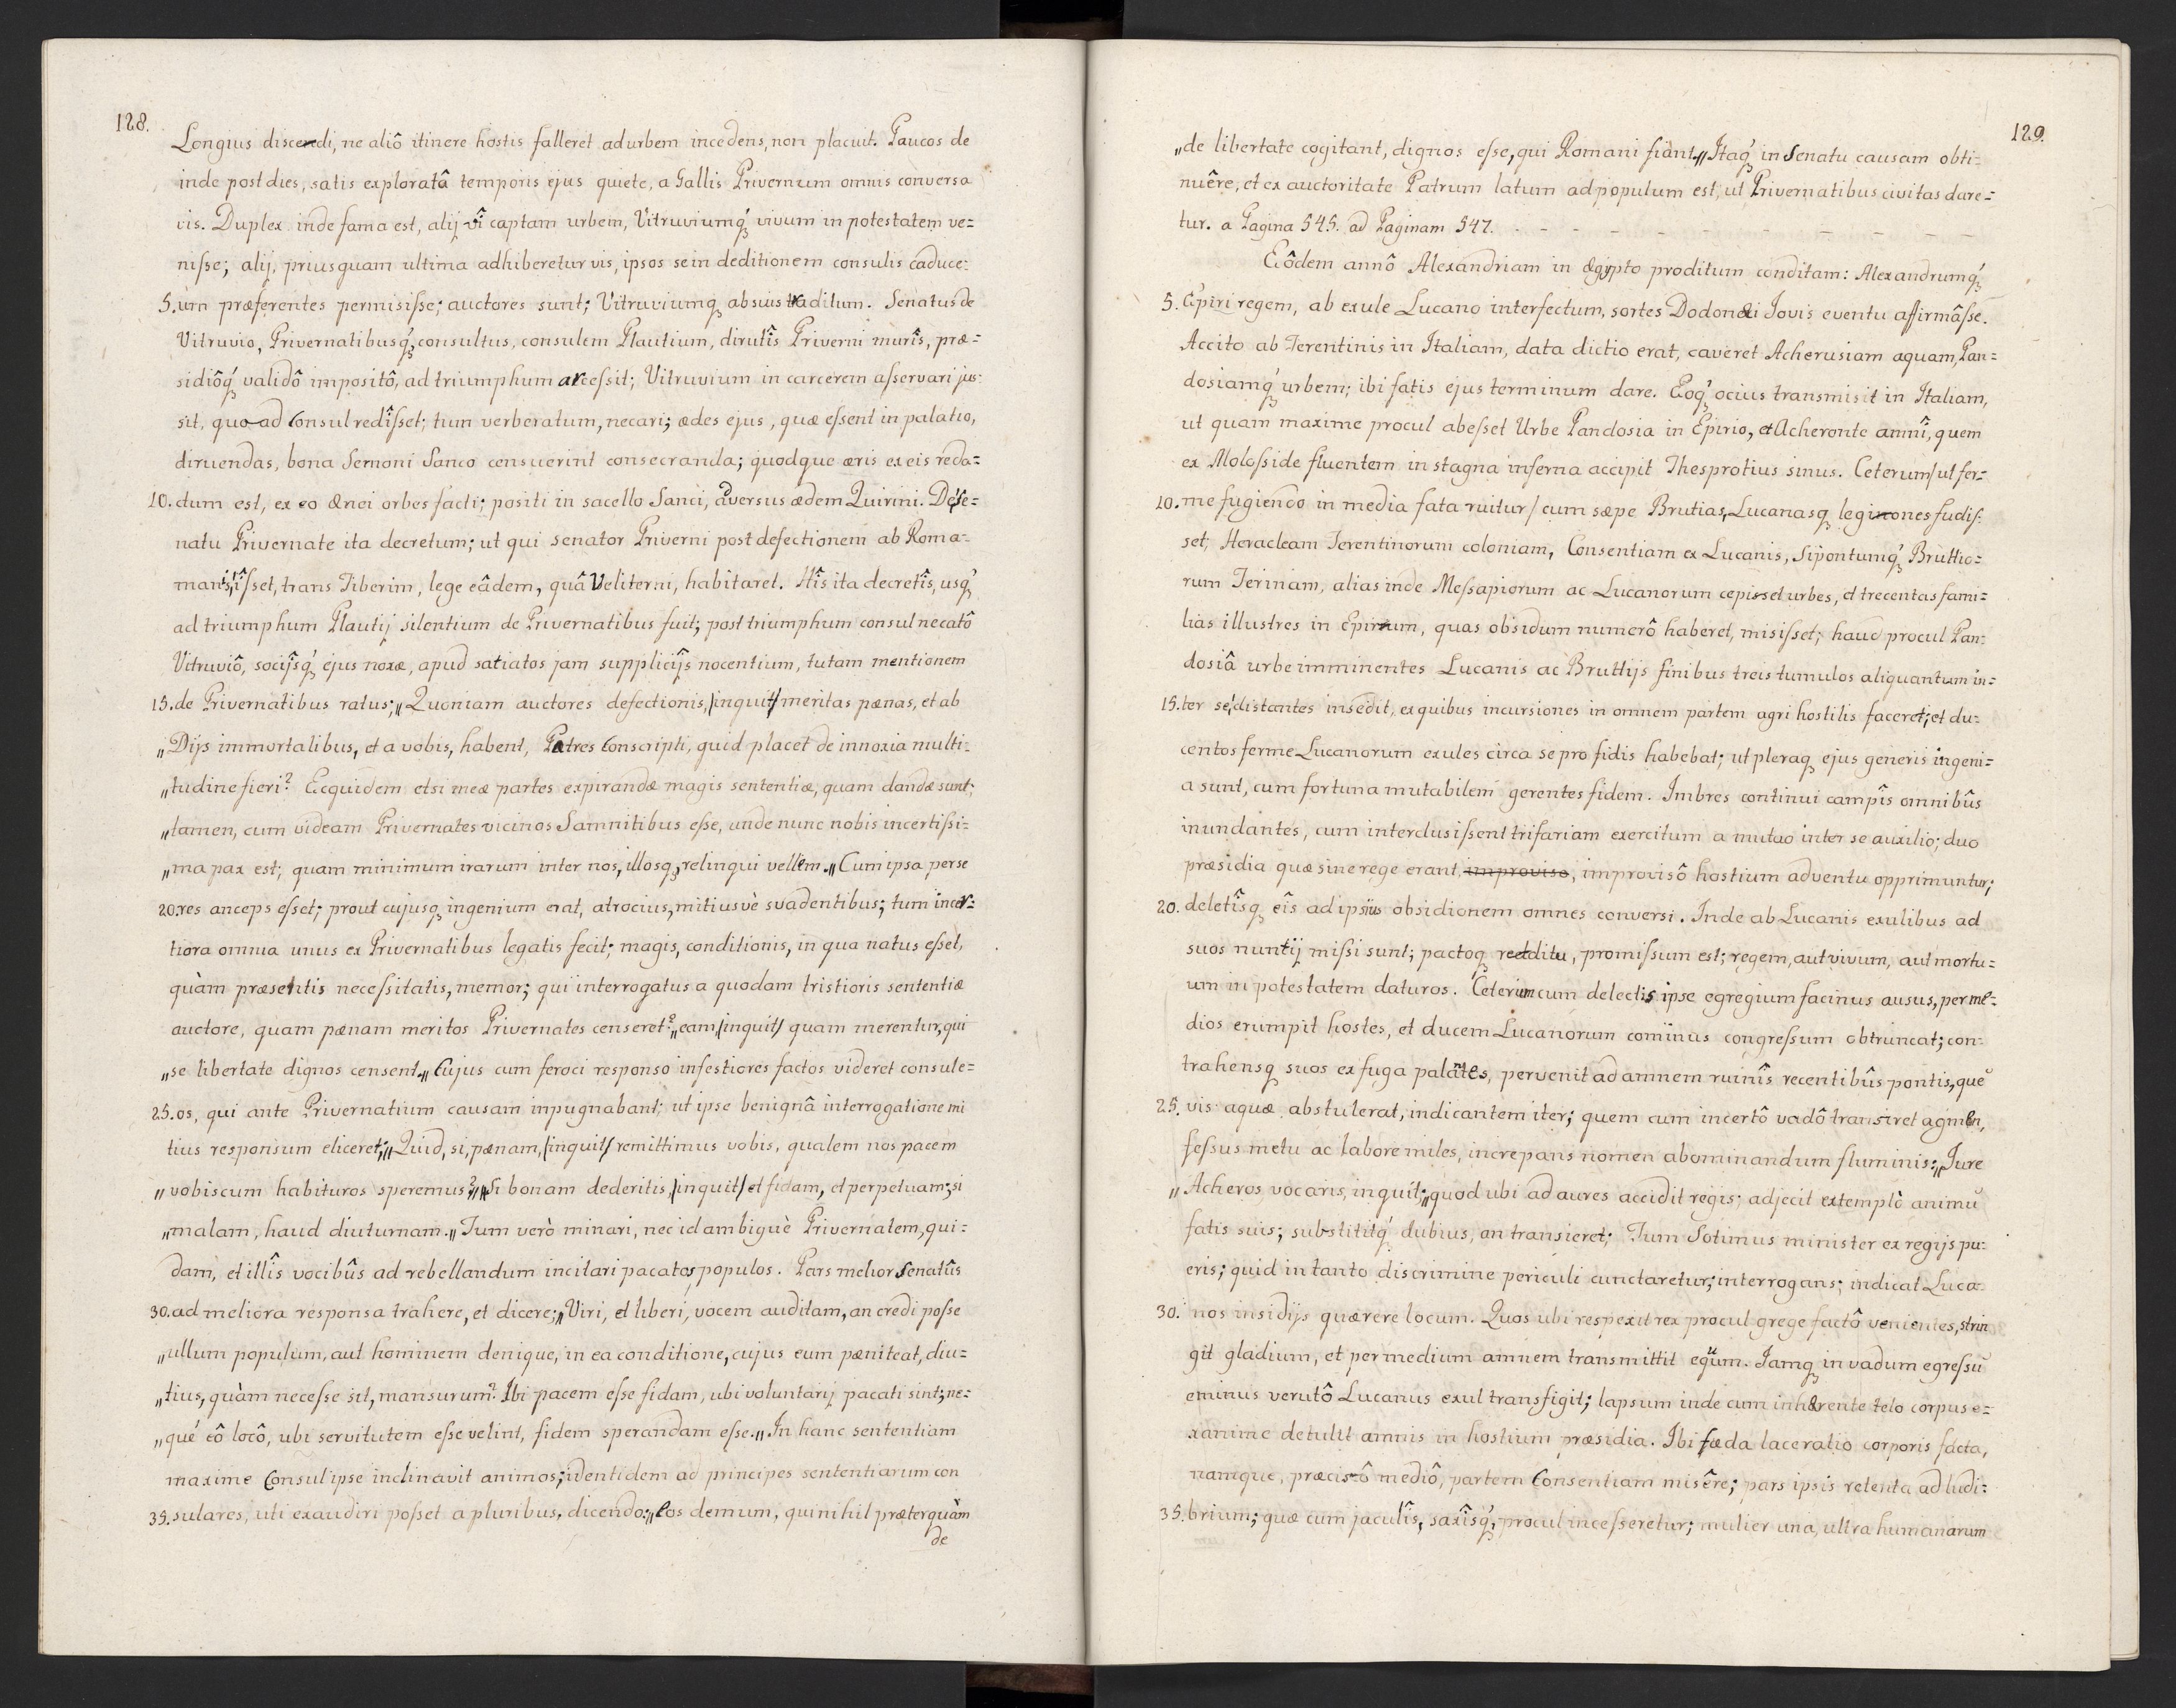 128.
Longius discendi, ne aliô itinere hostis falleret ad urbem incedens, non placuit. Paucos de
inde post dies, satis exploratâ temporis ejus quiete, a Gallis Privernum omnis conversa
vis. Duplex inde fama est, alij vî captam urbem, Vitruviumq́ʒ vivum in potestatem ve=
nisse; alij, priusquam ultima adhiberetur vis, ipsos se in deditionem consulis caduce=
5. um præferentes permisisse; auctores sunt; Vitruviumqʒ ab suis traditum. Senatus de
Vitruvio, Privernatibusq́ʒ, consultus, consulem Plautium, dirutîs Priverni murîs, præ=
sidiôq́ʒ validô impositô, ad triumphum arcessit; Vitruvium in carcerem asservari jus=
sit, quoad Consul redîsset; tum verberatum, necari; ædes ejus, quæ essent in palatio,
diruendas, bona Semoni Sanco censuerint consecranda; quodque æris ex eis reda=
10. ctum est, ex eo ænei orbes facti; positi in sacello Sanci, adversus ædem Quirini. De se=
natu Privernate ita decretum; ut qui senator Priverni post defectionem ab Roma=
manîs, îsset, trans Tiberim, lege eâdem, quâ Veliterni, habitaret. Hîs ita decretîs, usq́ʒ
ad triumphum Plautij silentium de Privernatibus fuit; post triumphum consul necatô
Vitruviô, socijsq́ʒ ejus noxæ, apud satiatos jam supplicijs nocentium, tutam mentionem
15. de Privernatibus ratus; „Quoniam auctores defectionis, /inquit/ meritas pœnas, et ab
„Dijs immortalibus, et a vobis, habent, Patres Conscripti, quid placet de innoxia multi=
„tudine fieri? Ecquidem etsi meæ partes expirandæ magis sententiæ, quam dandæ sunt;
„tamen, cum videam Privernates vicinos Samnitibus esse, unde nunc nobis incertissi=
„ma pax est; quam minimum irarum inter nos, illosqʒ, relinqui vellem.„ Cum ipsa per se
20. res anceps esset; prout cujusqʒ ingenium erat, atrocius, mitiusvè svadentibus; tum incer=
tiora omnia unus ex Privernatibus legatis fecit; magis, conditionis, in qua natus esset,
quàm præsentis necessitatis, memor; qui interrogatus a quodam tristioris sententiæ
auctore, quam pœnam meritos Privernates censeret? „eam, /inquit/ quam merentur, qui
„se libertate dignos censent.„ Cujus cum feroci responso infestiores factos videret consule=
25. os, qui ante Privernatium causam impugnabant; ut ipse benignâ interrogatione mi
tius responsum eliceret; „Quid, si, pœnam, /inquit/ remittimus vobis, qualem nos pacem
„vobiscum habituros speremus?„ „Si bonam dederitis, /inquit/ et fidam, et perpetuam; si
„malam, haud diuturnam.„ Tum verò minari, nec id ambiguè Privernatem, qui=
dam, et illîs vocibûs ad rebellandum incitari pacatos populos. Pars melior Senatûs
30. ad meliora responsa trahere, et dicere; „Viri, et liberi, vocem auditam, an credi posse
„ullum populum, aut hominem denique, in ea conditione, cujus eum pœniteat, diu=
„tius, quàm necesse sit, mansurum? Ibi pacem esse fidam, ubi voluntarij pacati sint; ne=
„què eô locô, ubi servitutem esse velint, fidem sperandam esse.„ In hanc sententiam
maxime Consul ipse inclinavit animos; identidem ad principes sententiarum con
35. sulares, uti exaudiri posset a pluribus, dicendo: „Eos demum, qui nihil præterquàm
de
129.
„de libertate cogitant, dignos esse, qui Romani fiant.„ Itaq́ʒ in Senatu causam obti=
nuêre, et ex auctoritate Patrum latum ad populum est, ut Privernatibus civitas dare=
tur. a Pagina 545. ad Paginam 547. - - - - - - - - -
Eôdem annô Alexandriam in Ægypto proditum conditam: Alexandrumq́ʒ
5. Epiri regem, ab exule Lucano interfectum, sortes Dodonæi Jovis eventu affirmâsse.
Accito ab Terentinis in Italiam, data dictio erat, caveret Acherusiam aquam, Pan=
dosiamq́ʒ urbem; ibi fatis ejus terminum dare. Eoq́ʒ ocius transmisit in Italiam,
ut quam maxime procul abesset Urbe Pandosia in Epirio, et Acheronte amnî, quem
ex Molosside fluentem in stagna inferna accipit Thesprotius sinus. Ceterum /ut fer=
10. me fugiendo in media fata ruitur/ cum sæpe Brutias, Lucanasqʒ legiones fudis=
set, Heracleam Terentinorum coloniam, Consentiam ex Lucanis, Sipontumq́ʒ Bruttio=
rum Terinam, alias inde Messapiorum ac Lucanorum cepisset urbes, et trecentas fami=
lias illustres in Epirum, quas obsidum numerô haberet, misisset; haud procul Pan=
dosiâ urbe imminentes Lucanis ac Bruttijs finibus treis tumulos aliquantum in=
15. ter se distantes insedit, ex quibus incursiones in omnem partem agri hostilis faceret; et du=
centos ferme Lucanorum exules circa se pro fidis habebat; ut pleraqʒ ejus generis ingeni=
a sunt, cum fortuna mutabilem gerentes fidem. Imbres continui campîs omnibûs
inundantes, cum interclusissent trifariam exercitum a mutuo inter se auxilio; duo
præsidia quæ sine rege erant, improviso, improvisô hostium adventu opprimuntur;
20. deletîsqʒ eîs ad ipsius obsidionem omnes conversi. Inde ab Lucanis exulibus ad
suos nuntij missi sunt; pactoqʒ redditu, promissum est; regem, aut vivum, aut mortu=
um in potestatem daturos. Ceterum cum delectis ipse egregium facinus ausus, per me=
dios erumpit hostes, et ducem Lucanorum cominus congressum obtruncat; con=
trahensqʒ suos ex fuga palātes, pervenit ad amnem ruinîs recentibûs pontis, quē
25. vis aquæ abstulerat, indicantem iter; quem cum incertô vadô transiret agmen,
fessus metu ac labore miles, increpans nomen abominandum fluminis: „Jure
„Acheros vocaris, inquit;„ quod ubi ad aures accidit regis; adjecit extemplò animū
fatis suis; substititq́ʒ dubius, an transieret; Tum Sotimus minister ex regijs pu=
eris; quid in tanto discrimine periculi cunctaretur; interrogans; indicat Luca=
30. nos insidijs quærere locum. Quos ubi respexit rex procul grege factô venientes, strin
git gladium, et per medium amnem transmittit equum. Jamqʒ in vadum egressū
eminus verutô Lucanus exul transfigit; lapsum inde cum inhærente telo corpus e=
xanime detulit amnis in hostium præsidia. Ibi fœda laceratio corporis facta,
namque, præcisô mediô, partem Consentiam misêre; pars ipsis retenta ad ludi=
35. brium; quæ cum jaculîs, saxîsq́ʒ, procul incesseretur; mulier una, ultra humanarum